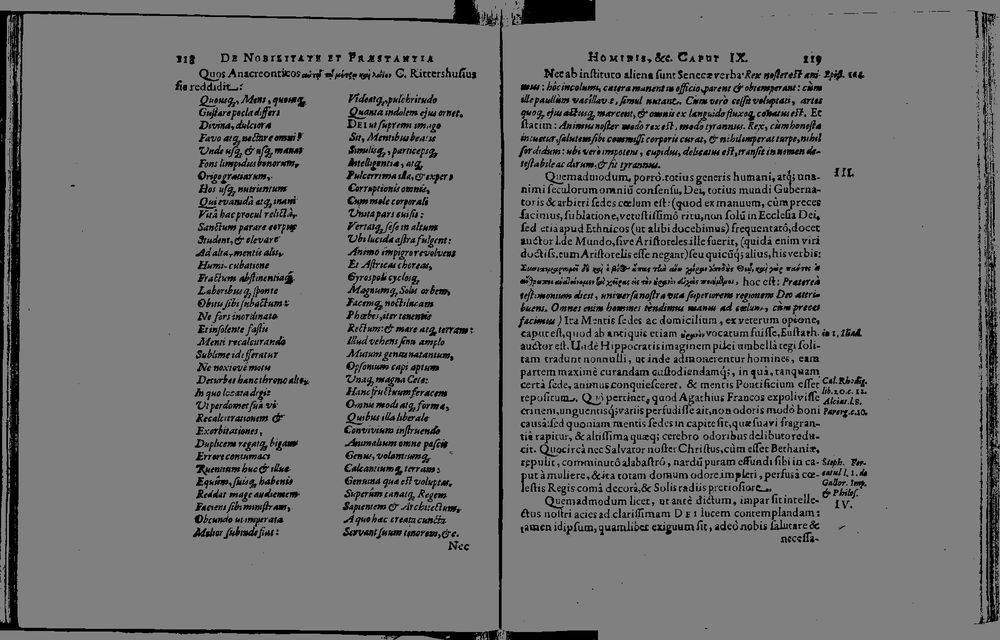 118 DE NOBILITATE ET PRÆSTANTIA
Quos Anacreonticos C. Rittershusius
sic reddidit:
Quousq, Mens, quousq
Gustare pocla differs
Divina, dulciora
Favo atq, nectare omni?
Unde usq, & usq, manat
Fons limpidus bonorum,
Origo gratiarum,
Hos usq, nutrientum
Qui evanida atq, inani
Vitâ hac procul relictâ,
Sanctum parare corpus
Student, & elevare
Ad alta, mentis alis,
Humi-cubatione
Fractum abstinentiaq,
Laboribusq, sponte
Obitis sibi subactum:
Ne fors inordinato
Et insolente fastu
Menti recalcitrando
Sublime id efferatur
Ne noxiove motu
Deturbet hanc throno alto,
In quo locata degit
Ut perdomet sua vi
Recalcitrationem &
Exorbitationes,
Duplicem regatq, bigam
Errore contumaci
Ruentium huc & illuc
Equûm, suisq, habenis
Reddat mage audientem
Faciens sibi ministram,
Obeundo ut imperata
Melior subinde fiat:
Videatq, pulchritudo
Quanta indolem ejus ornet.
DEI ut supremi imago
Sit, Mentibus beatis
Similisq, particepsq,
Intelligentia, atq,
Pulcerrima illa, & expers
Corruptionis omnis,
Cum mole corporali
Unita pars cuivis:
Vertatq, sese in altum
Ubi lucida astra fulgent:
Animo impigro revolvens
Et Astricas choreas,
Gyrosq, & cyclosq,
Magnumq, Solis orbem,
Facemq, noctilucam
Phœbes, iter tenentis
Rectum: & mare atq, terram:
Illud vehens sinu amplo
Mutum genus natantum,
Opsonium capi aptum
Unaq, magna Cete:
Hanc fructuum feracem
Omnis modi atq, forma,
Quibus illa liberale
Convivium instruendo
Animalium omne pascit
Genus, volantiumq,
Calcantiumq, terram:
Genuina quæ est voluptas,
Superûm canatq, Regem
Sapientem & Architectum,
A quo hac creata cuncta
Servant suum tenorem, &c.
Nec
HOMINIS, &c. CAPUT IX. 119
Nec ab instituto aliena sunt Senecæ verba: Rex noster est ani- Epist. 114.
mus: hôc incolumi, cætera manent in officio, parent & obtemperant: cùm
ille paullùm vacillavit, simul nutant. Cùm verò cessit voluptati, artes
quoq, ejus actusq, marcent, & omnis ex languido fluxoq, conatus est. Et
statim: Animus noster modo rex est, modo tyrannus. Rex, cùm honesta
intuetur, salutem sibi commissi corporis curat, & nihil imperat turpe, nihil
sordidum: ubi verò impotens, cupidus, delicatus est, transit in nomen de-
testabile ac dirum, & fit tyrannus.
Quemadmodum, porrò, totius generis humani, atq; una- III.
nimi seculorum omniũ consensu, Dei, totius mundi Guberna-
toris & arbitri sedes cœlum est: (quod ex manuum, cùm preces
facimus, sublatione, vetustissimô ritu, non solũ in Ecclesia Dei,
sed etia apud Ethnicos (ut alibi docebimus) frequentatô, docet
auctor l. de Mundo, sive Aristoteles ille fuerit, (quidã enim viri
doctiss, eum Aristotelis esse negant) seu quicũq; alius, his verbis:
hoc est: Præterea
testimonium dicit, universa nostra vita superiorem regionem Deo attri-
buens. Omnes enim homines tendimus manus ad cœlum, cùm preces
facimus) Ita Mentis sedes ac domicilium, ex veterum opinione,
caput est, quod ab antiquis etiam vocatum fuisse, Eustath. in 1, Iliad.
auctor est. Unde Hippocratis imaginem pilei umbellâ tegi soli-
tam tradunt nonnulli, ut inde admonerentur homines, eam
partem maximè curandam custodiendamq;, in quâ, tanquam
certâ sede, animus conquiesceret, & mentis Pontificium esset Cal. Rhodig.
repositum. Quò pertinet, quod Agathius Francos expolivisse lib. 20. c. 12.
crinem, unguentisq; variis perfudisse ait, non odoris modô boni Alciat. l. 8.
causâ: sed quoniam mentis sedes in capite sit, quæ suavi fragran- Parerg. c. 20.
tiæ rapitur, & altissima quæq; cerebro odoribus delibuto redu-
cit. Quocircà nec Salvator noster Christus, cùm esset Bethaniæ,
repulit, comminutô alabastrô, nardũ puram effundi sibi in ca- Steph. For-
put à muliere, & ita totam domum odore impleri, perfusâ cœ- catul l. 1. de
lestis Regis comâ decorâ, & Solis radiis pretiosiore. Gallor. Imp. & Philos.
Quemadmodum licet, ut antè dictum, impar sit intelle- IV.
ctus nostri acies ad clarissimam DEI lucem contemplandam:
tamen id ipsum, quamlibet exiguum sit, adeò nobis salutare &
necessa-